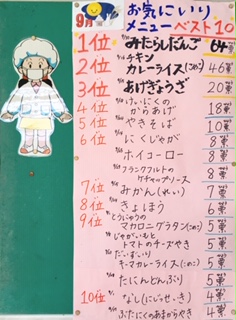 9月
お気にいり
メニューベスト10
1位 みたらしだんご 64票
2位 チキン
カレーライス(こめこ) 46票
3位 あげぎょうざ 20票
4位 けいにくの
からあげ 18票
5位 やきそば 10票
6位 にくじゃが 8票
ホイコーロー 8票
フランクフルトの
ケチャップソース 8票
7位 みかん(れい) 7票
8位 きょほう 6票
9位 とうにゅうの
マカロニグラタン(こめこ) 5票
じゃがいもと
トマトのチーズやき 5票
だいずいり
キーマカレーライス(こめこ) 5票
たにんどんぶり 5票
10位 なし(にっせいき) 4票
ぶたにくのあまからやき 4票